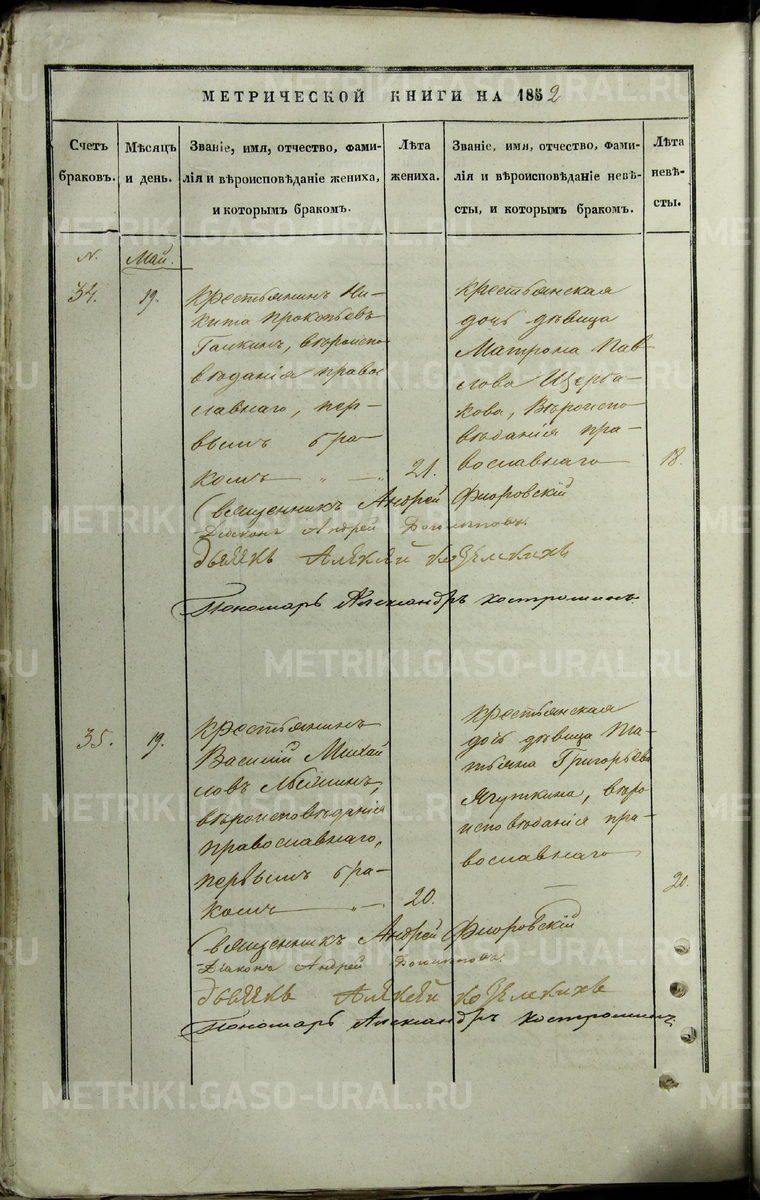 МЕТРИЧЕСКОЙ КНИГИ НА 1852
Счетъ браковъ.
Мѣсяцъ и день.
Званіе, имя, отчество, фами-
лія и вѣроисповѣданіе жениха,
и которымъ бракомъ.
Лѣта жениха.
Званіе, имя, отчество, фами-
лія и вѣроисповѣданіе невѣ-
сты, и которымъ бракомъ.
Лѣта невѣ-
сты.
N.
Май.
34.
19.
Крестьянинъ Ни-
кита Прокопьевъ
Галкинъ, вѣроиспо
вѣданія право
славнаго, пер-
вымъ бра-
комъ
21.
Крестьянская
дочь дѣвица
Матрона Пав
лова Щерба-
кова, вѣроиспо
вѣданія пра-
вославнаго
18.
Священникъ Андрей Флоровскій
Діаконъ Андрей
Дьячекъ Алексѣй Козельскихъ
Пономарь Александръ Костроминъ
35.
19.
Крестьянинъ
Василій Михай
ловъ
вѣроисповѣданія
православнаго,
первымъ бра-
комъ
20.
Крестьянская
дочь дѣвица Та-
тьяна Григорьева
Ягуткина, вѣро
исповѣданія пра-
вославнаго
20.
Священникъ Андрей Флоровскій
Діаконъ Андрей
Дьячекъ Алексѣй Козельскихъ
Пономарь Александръ Костроминъ
METRIKI.GASO-URAL.RU